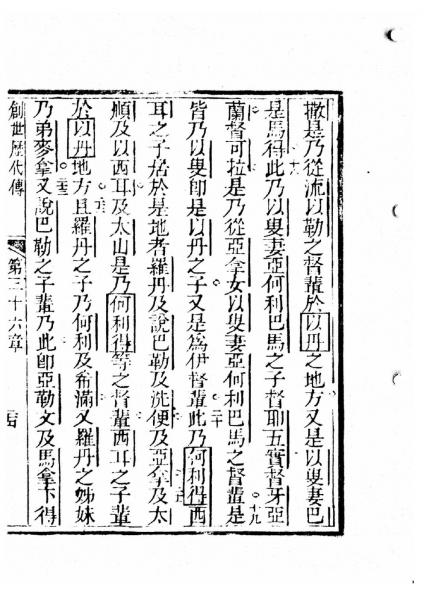 撒是乃從流以勒之督輩於以丹之地方又是以叟妻巴
是馬得此乃以叟妻亞何利巴馬之子督耶五實督牙亞
蘭督可拉是乃從亞拿女以叟妻亞何利巴馬之督輩是
皆乃以叟卽是以丹之子又是爲伊督輩此乃何利得西
耳之子居於是地者羅丹及說巴勒及洗便及亞拿及太
順及以西耳及太山是乃何利得等之督輩西耳之子輩
於以丹地方且羅丹之子乃何利及希滿又羅丹之姊妹
乃弟麥拿又說巴勒之子輩乃此卽亞勒文及馬拿下得
創世歷代傳
第三十六章